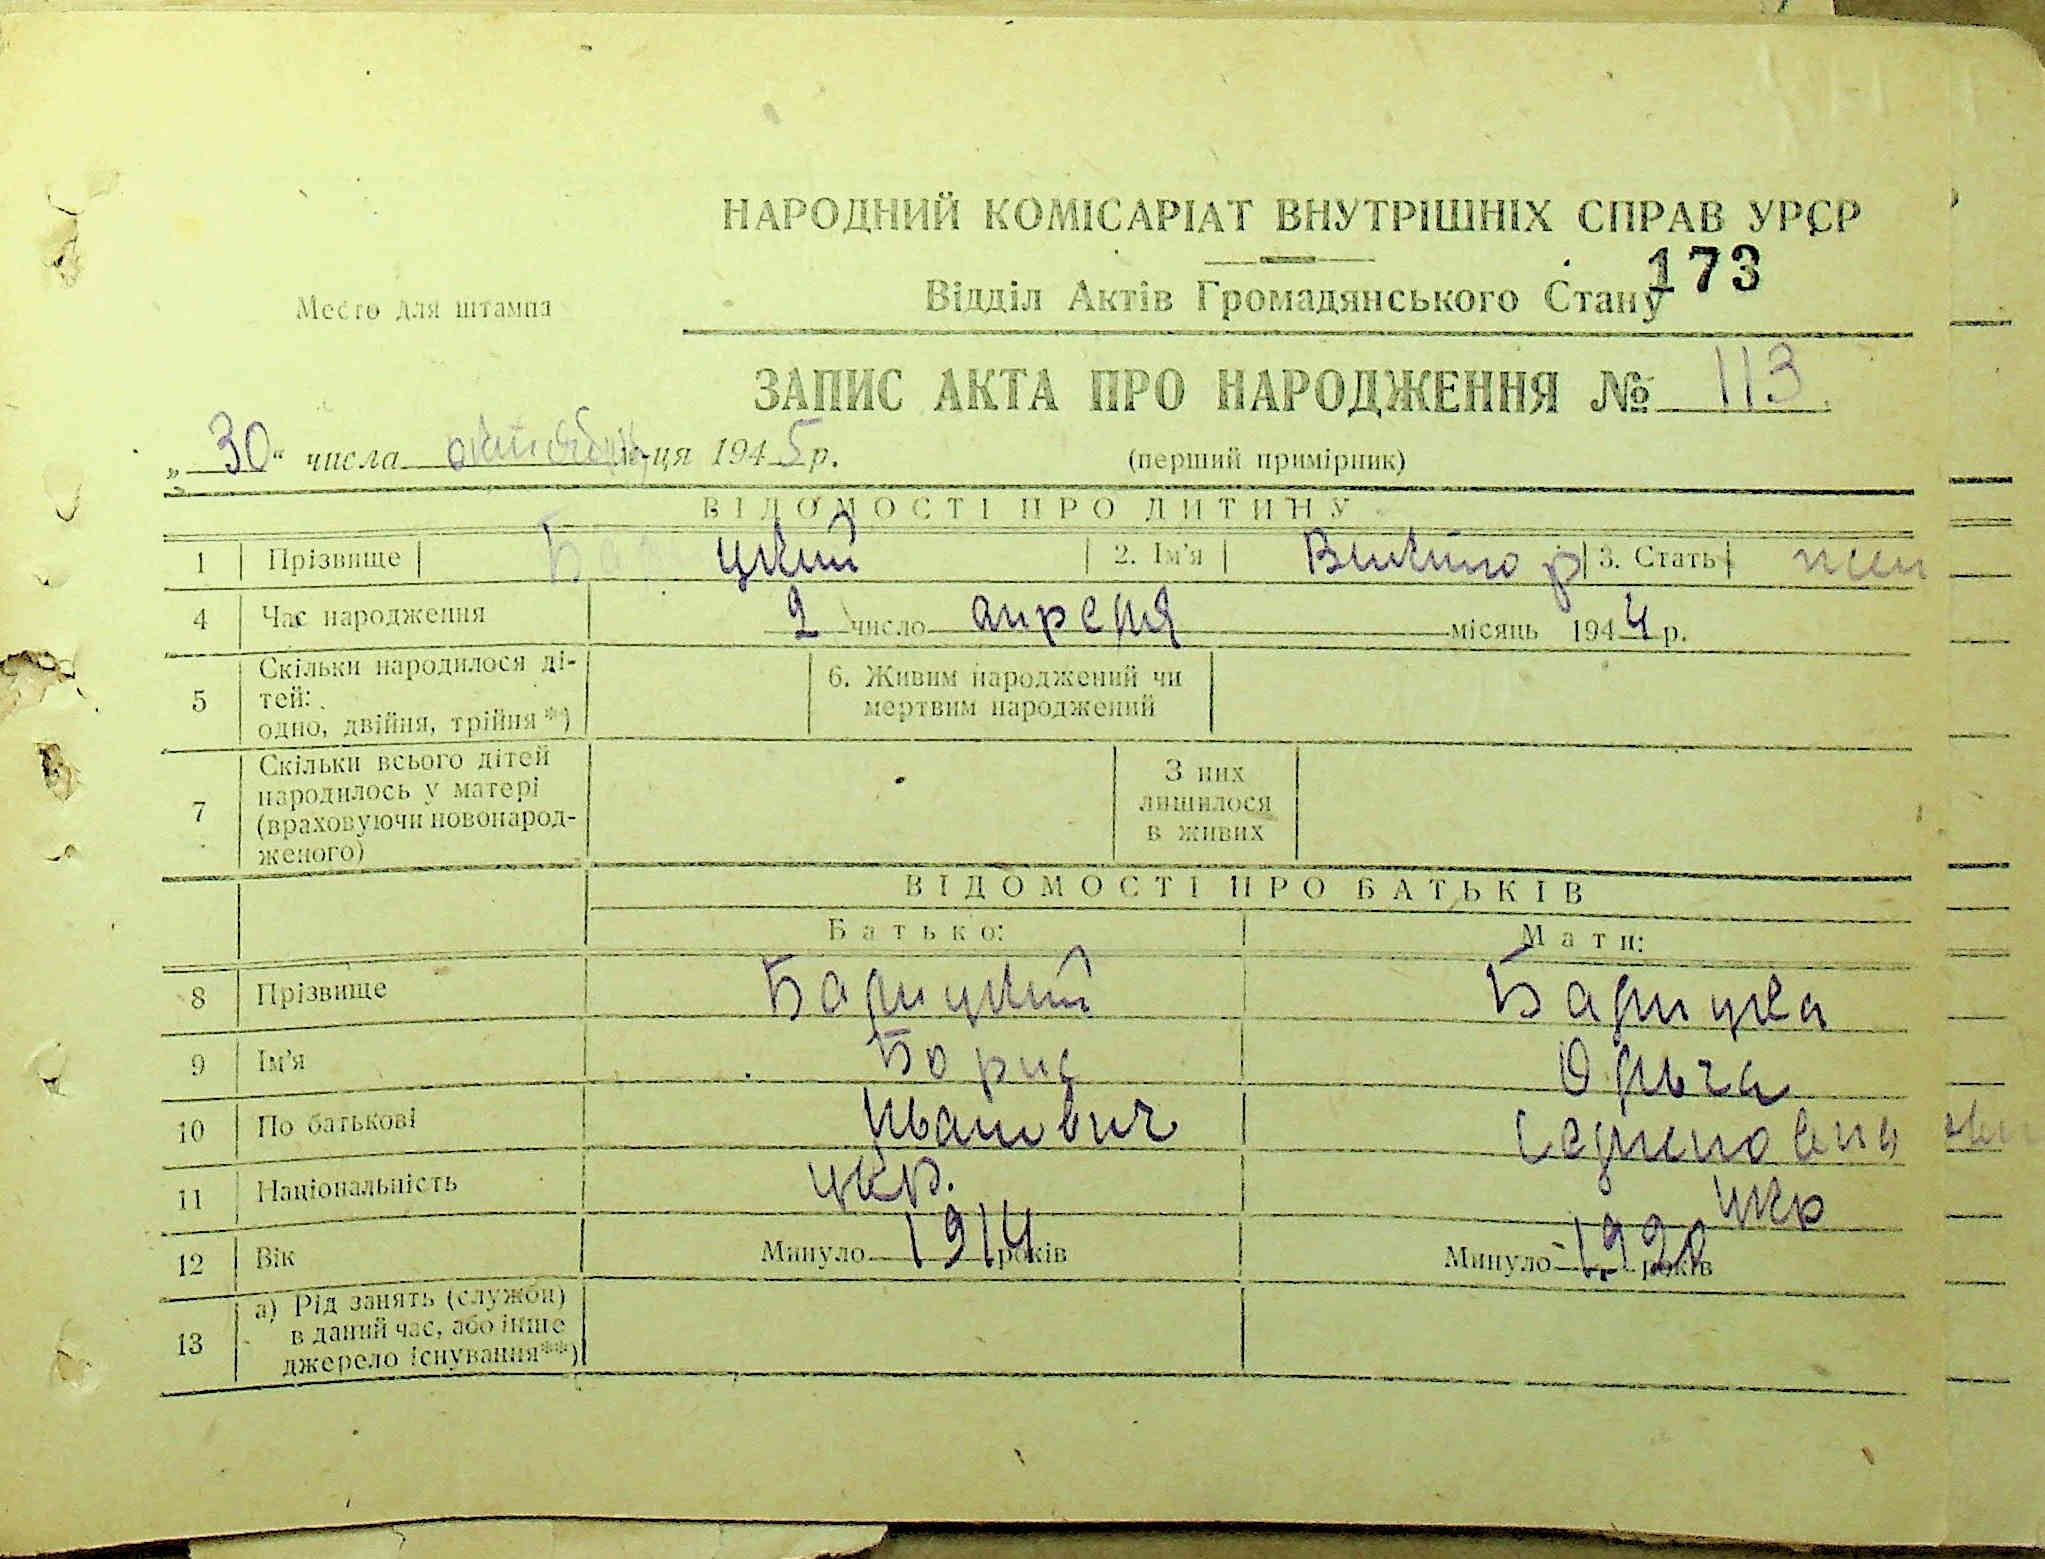 НАРОДНИЙ КОМІСАРІАТ ВНУТРІШНІХ СПРАВ УРСР
173
Место для штампа
Відділ Актів Громадянського Стану
ЗАПИС АКТА ПРО НАРОДЖЕННЯ № 113
„30“ числа октября м-ця 1945 р. (перший примірник)
ВІДОМОСТІ ПРО ДИТИНУ
1 Прізвище Балицкий 2. Ім'я Виктор 3. Стать
4 Час народження 2 число апреля місяць 1944 р.
5 Скільки народилося ді-
тей:
одно, двійня, трійня *)
6. Живим народжений чи
мертвим народжений
7 Скільки всього дітей
народилось у матері
(враховуючи новонарод-
женого)
З них
лишилося
в живих
ВІДОМОСТІ ПРО БАТЬКІВ
Батько: Мати:
8 Прізвище Балицкий Балицка
9 Ім'я Борис Ольга
10 По батькові Иванович
11 Національність укр. укр
12 Вік Минуло 1914 років Минуло 1928 років
13 а) Рід занять (служби)
в даний час, або інше
джерело існування**)